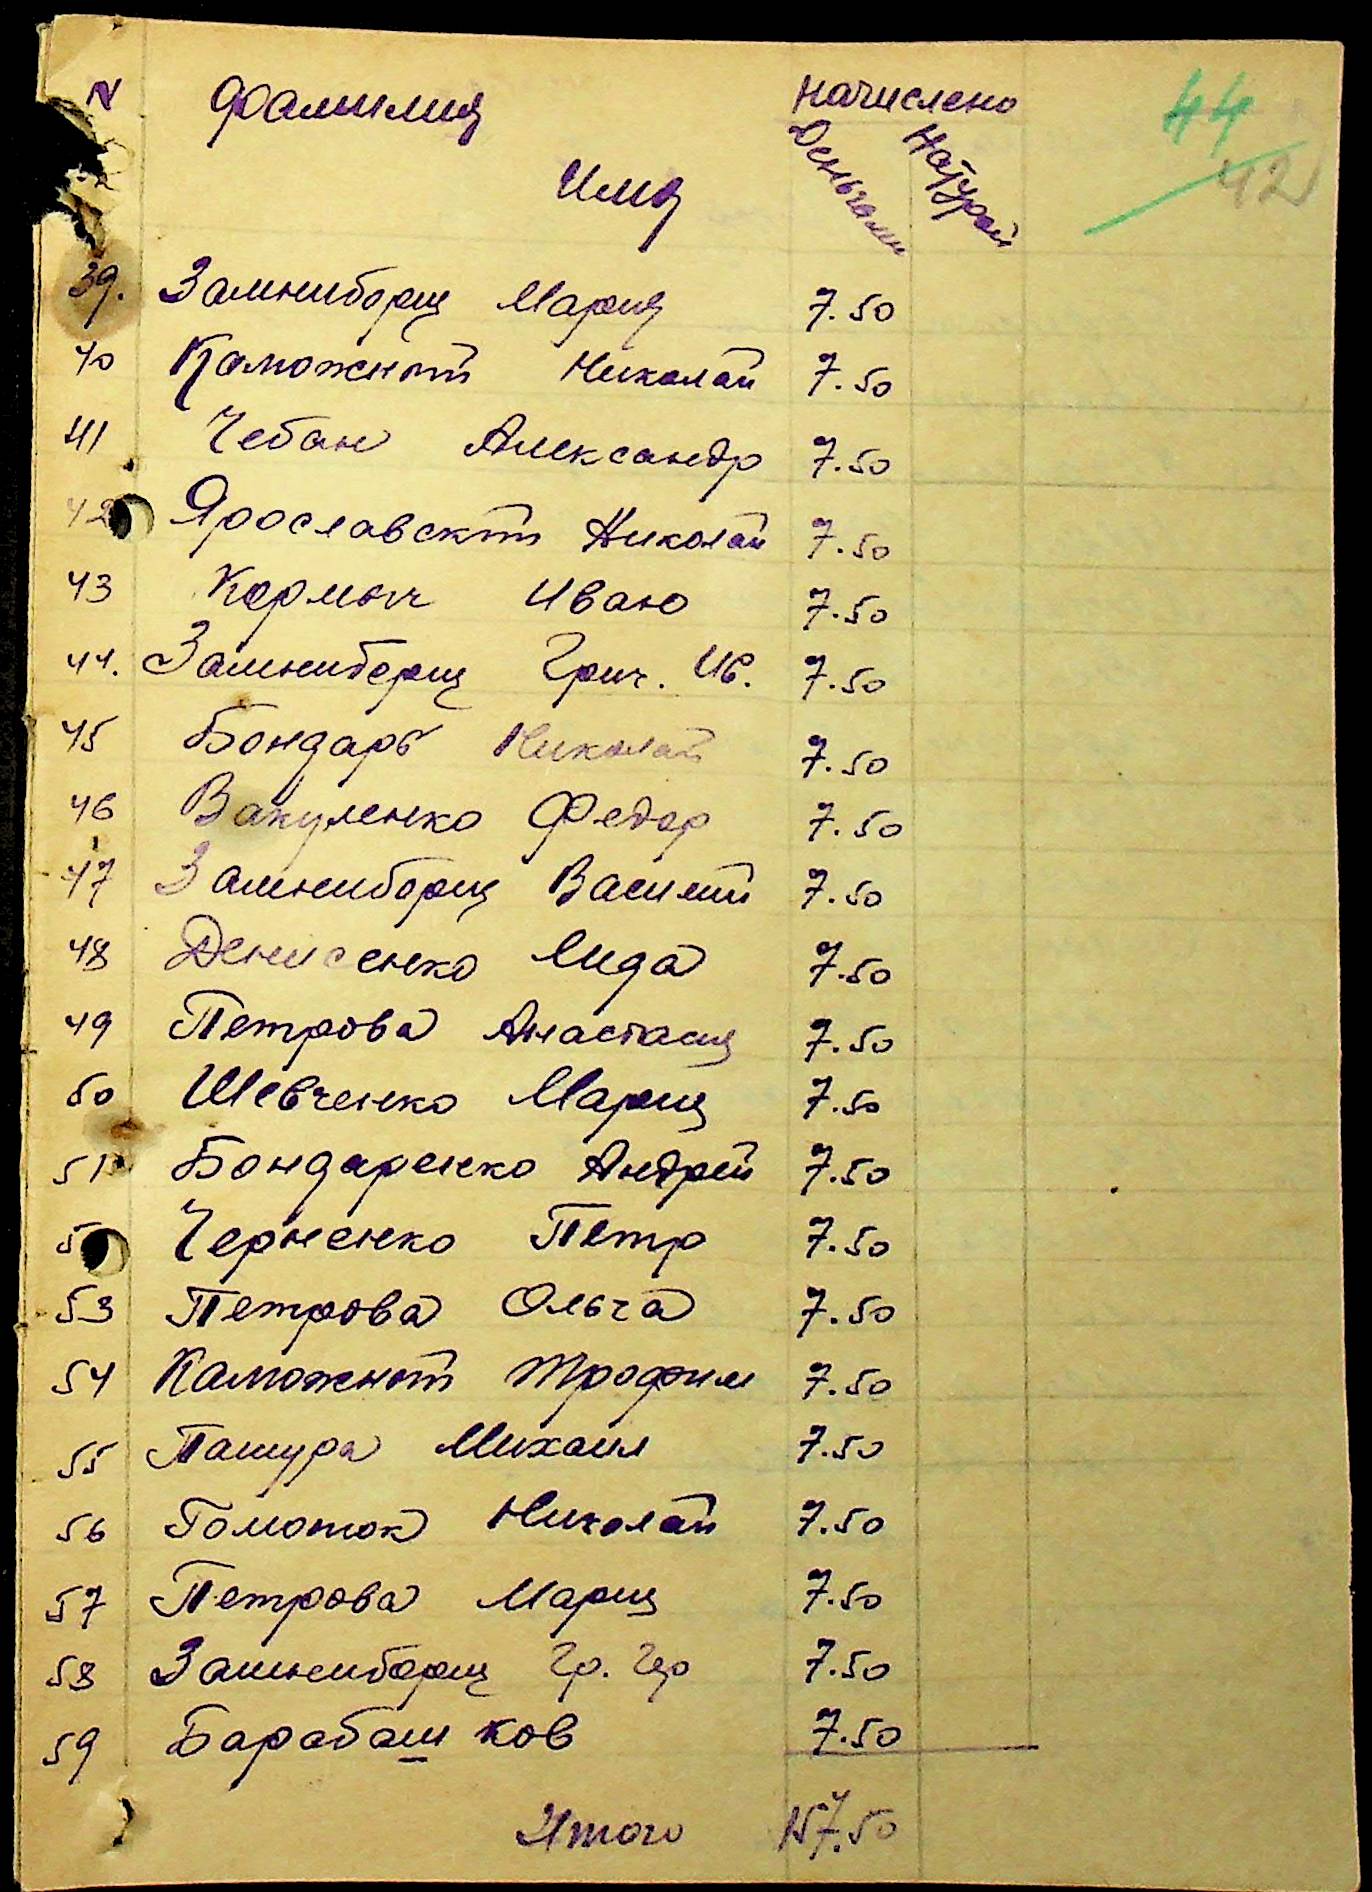 N Фамилия Начислено 44
Имя Деньгами Натурой 42
39. Замниборщ Мария 7.50
40 Каможный Николай 7.50
41 Чебан Александр 7.50
42 Ярославский Николай 7.50
43 Кормыч Иван 7.50
44. Замниборщ Григ. Ив. 7.50
45 Бондарь Николай 7.50
46 Вакуленко Федор 7.50
47 Замниборщ Василий 7.50
48 Денисенко Лида 7.50
49 Петрова Анастасия 7.50
50 Шевченко Мария 7.50
51 Бондаренко Андрей 7.50
5 Черненко Петр 7.50
53 Петрова Ольга 7.50
54 Каможный Трофим 7.50
55 Пашура Михаил 7.50
56 Гоматюк Николай 7.50
57 Петрова Мария 7.50
58 Замниборщ Гр. Гр 7.50
59 Барабашков 7.50
Итого 157.50